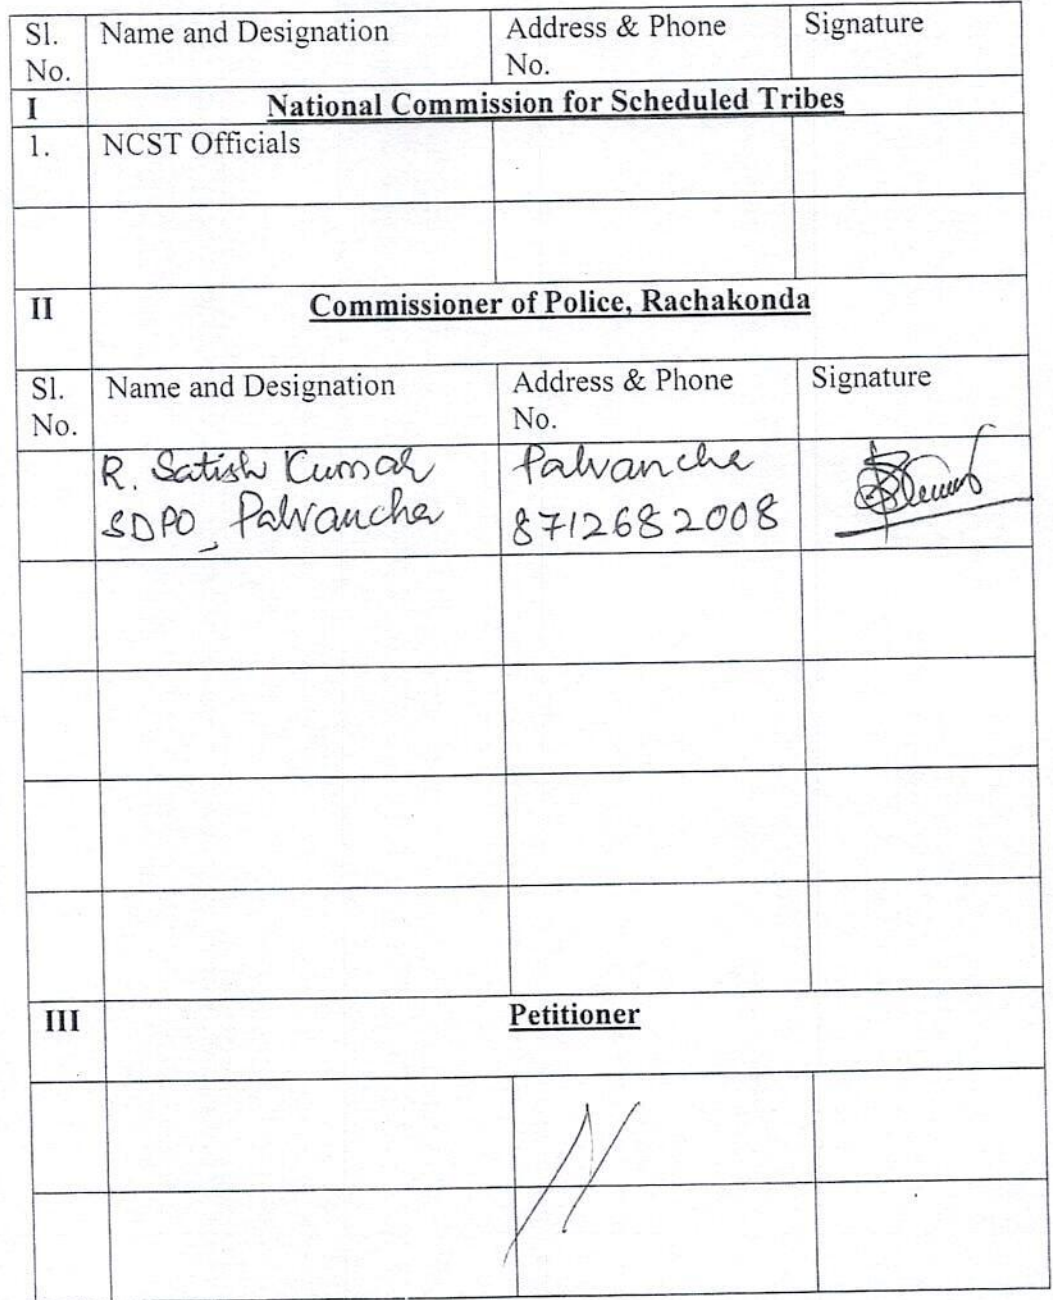 Sl. No. Name and Designation Address & Phone No. Signature
I National Commission for Scheduled Tribes
1. NCST Officials
II Commissioner of Police, Rachakonda
Sl. No. Name and Designation Address & Phone No. Signature
R. Satish Kumar Palvancha
SDPO, Palvancha 8712682008
III Petitioner